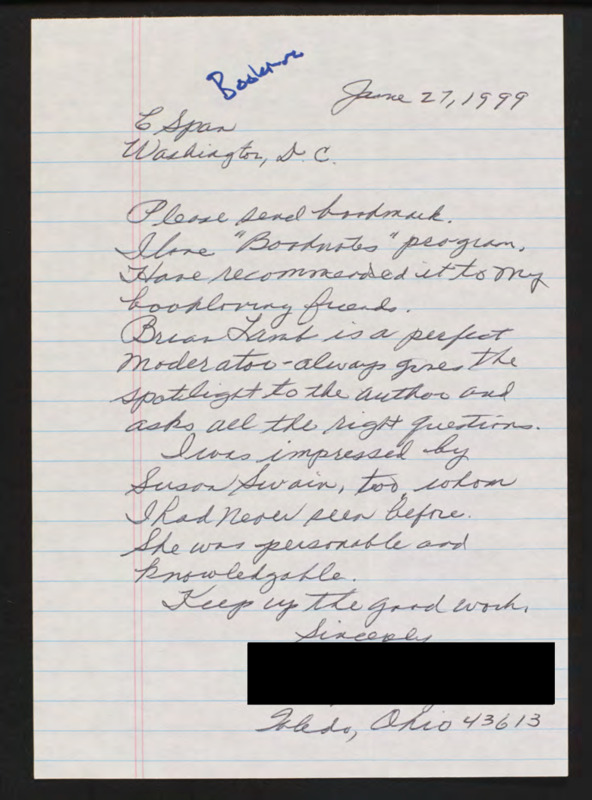 Bookmark
June 27, 1999
C Span
Washington, D.C.
Please send bookmark.
I love "Booknotes" program.
Have recommended it to my
bookloving friends.
Brian Lamb is a perfect
moderator - always gives the
spotlight to the author and
asks all the right questions.
I was impressed by
Susan Swain, too, whom
I had never seen before.
She was personable and
knowledgable.
Keep up the good work.
Sincerely
Toledo, Ohio 43613